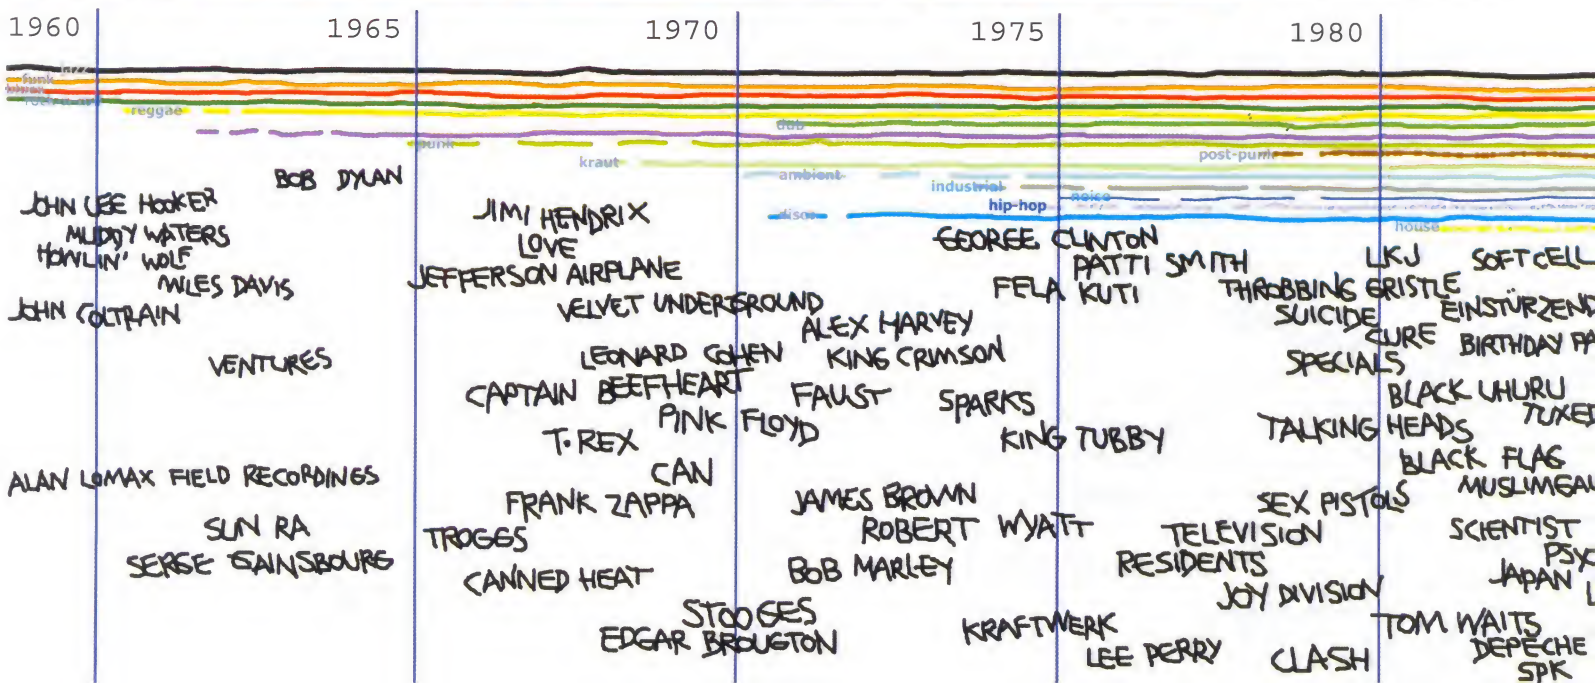 1960 1965 1970 1975 1980
jazz
funk
reggae
dub
punk
post-punk
kraut
ambient
industrial
noise
hip-hop
disco
house
BOB DYLAN
JOHN LEE HOOKER
MUDDY WATERS
HOWLIN' WOLF
MILES DAVIS
JOHN COLTRAIN
VENTURES
ALAN LOMAX FIELD RECORDINGS
SUN RA
SERGE GAINSBOURG
JIMI HENDRIX
LOVE
JEFFERSON AIRPLANE
VELVET UNDERGROUND
LEONARD COHEN
CAPTAIN BEEFHEART
PINK FLOYD
T.REX
CAN
FRANK ZAPPA
TROGGS
CANNED HEAT
STOOGES
EDGAR BROUGTON
GEORGE CLINTON
PATTI SMITH
FELA KUTI
ALEX HARVEY
KING CRIMSON
FAUST
SPARKS
KING TUBBY
JAMES BROWN
ROBERT WYATT
BOB MARLEY
KRAFTWERK
LEE PERRY
THROBBING GRISTLE
SUICIDE
SPECIALS
TALKING HEADS
SEX PISTOLS
TELEVISION
RESIDENTS
JOY DIVISION
CLASH
LKJ
SOFT CELL
EINSTÜRZEND
CURE
BIRTHDAY PA
BLACK UHURU
TUXED
BLACK FLAG
MUSLIMGAU
SCIENTIST
PSYC
JAPAN
L
TOM WAITS
DEPECHE
SPK